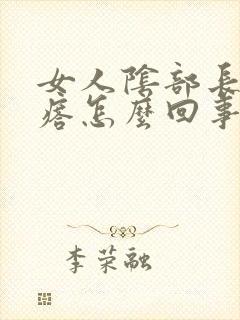 女人陰部長
痞怎麼回事
李荣融